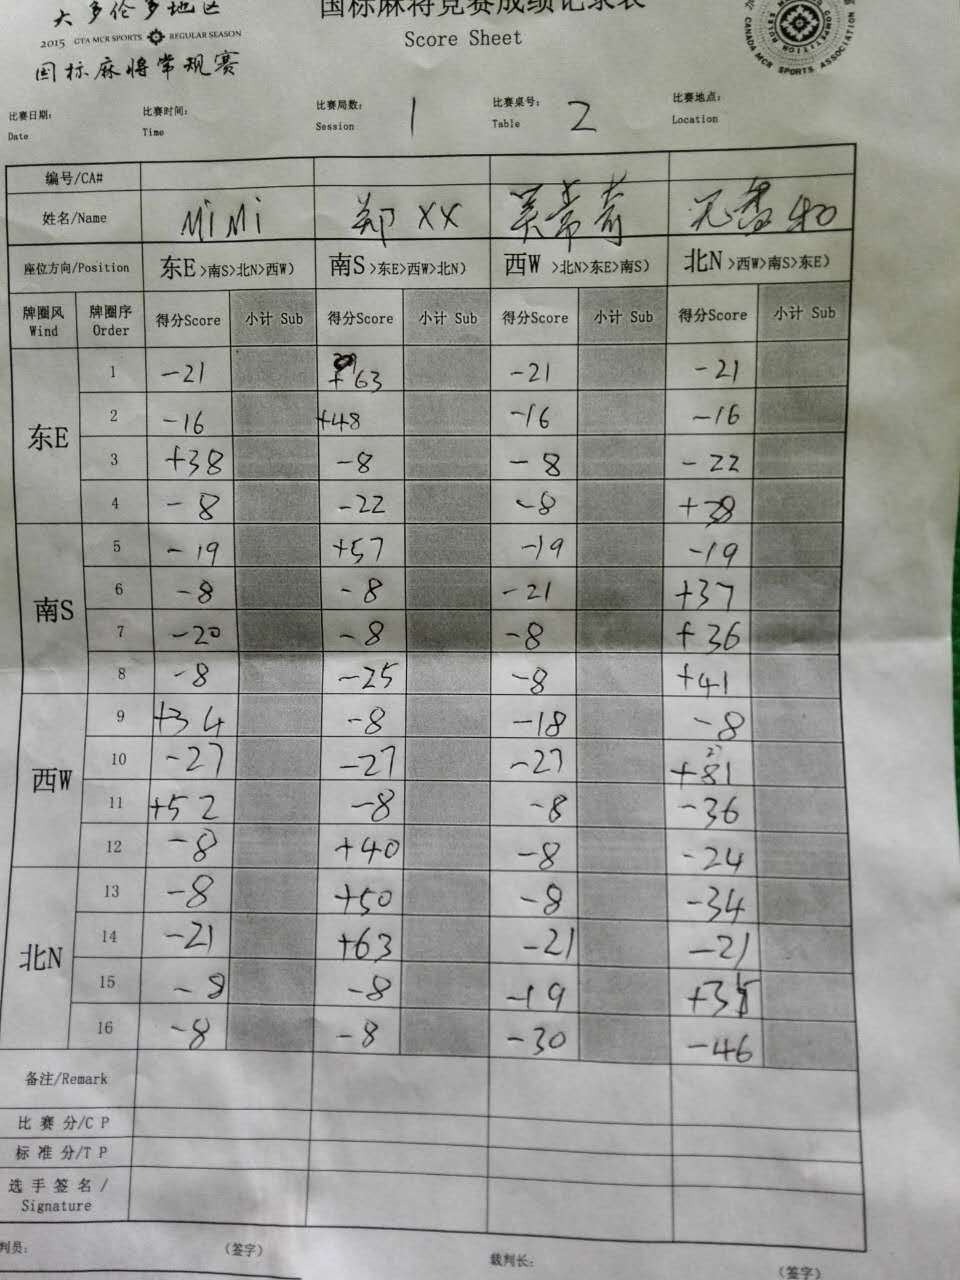 大多伦多地区
国标麻将竞赛成绩记录表
2015 GTA MCR SPORTS REGULAR SEASON
Score Sheet
CANADA MCR SPORTS ASSOCIATION
国标麻将常规赛
比赛日期: 比赛时间: 比赛局数: 1 比赛桌号: 2 比赛地点:
Date Time Session Table Location
编号/CA#
姓名/Name MiMi 郑 XX
座位方向/Position 东E>南S>北N>西W) 南S>东E>西W>北N) 西W >北N>东E>南S) 北N>西W>南S>东E)
牌圈风 牌圈序 得分Score 小计 Sub 得分Score 小计 Sub 得分Score 小计 Sub 得分Score 小计 Sub
Wind Order
东E
1 -21 +63 -21 -21
2 -16 +48 -16 -16
3 +38 -8 -8 -22
4 -8 -22 -8 +38
南S
5 -19 +57 -19 -19
6 -8 -8 -21 +37
7 -20 -8 -8 +36
8 -8 -25 -8 +41
西W
9 +34 -8 -18 -8
10 -27 -27 -27 +81
11 +52 -8 -8 -36
12 -8 +40 -8 -24
北N
13 -8 +50 -8 -34
14 -21 +63 -21 -21
15 -8 -8 -19 +35
16 -8 -8 -30 -46
备注/Remark
比 赛 分/C P
标 准 分/T P
选 手 签 名 /
Signature
判员: (签字) 裁判长: (签字)